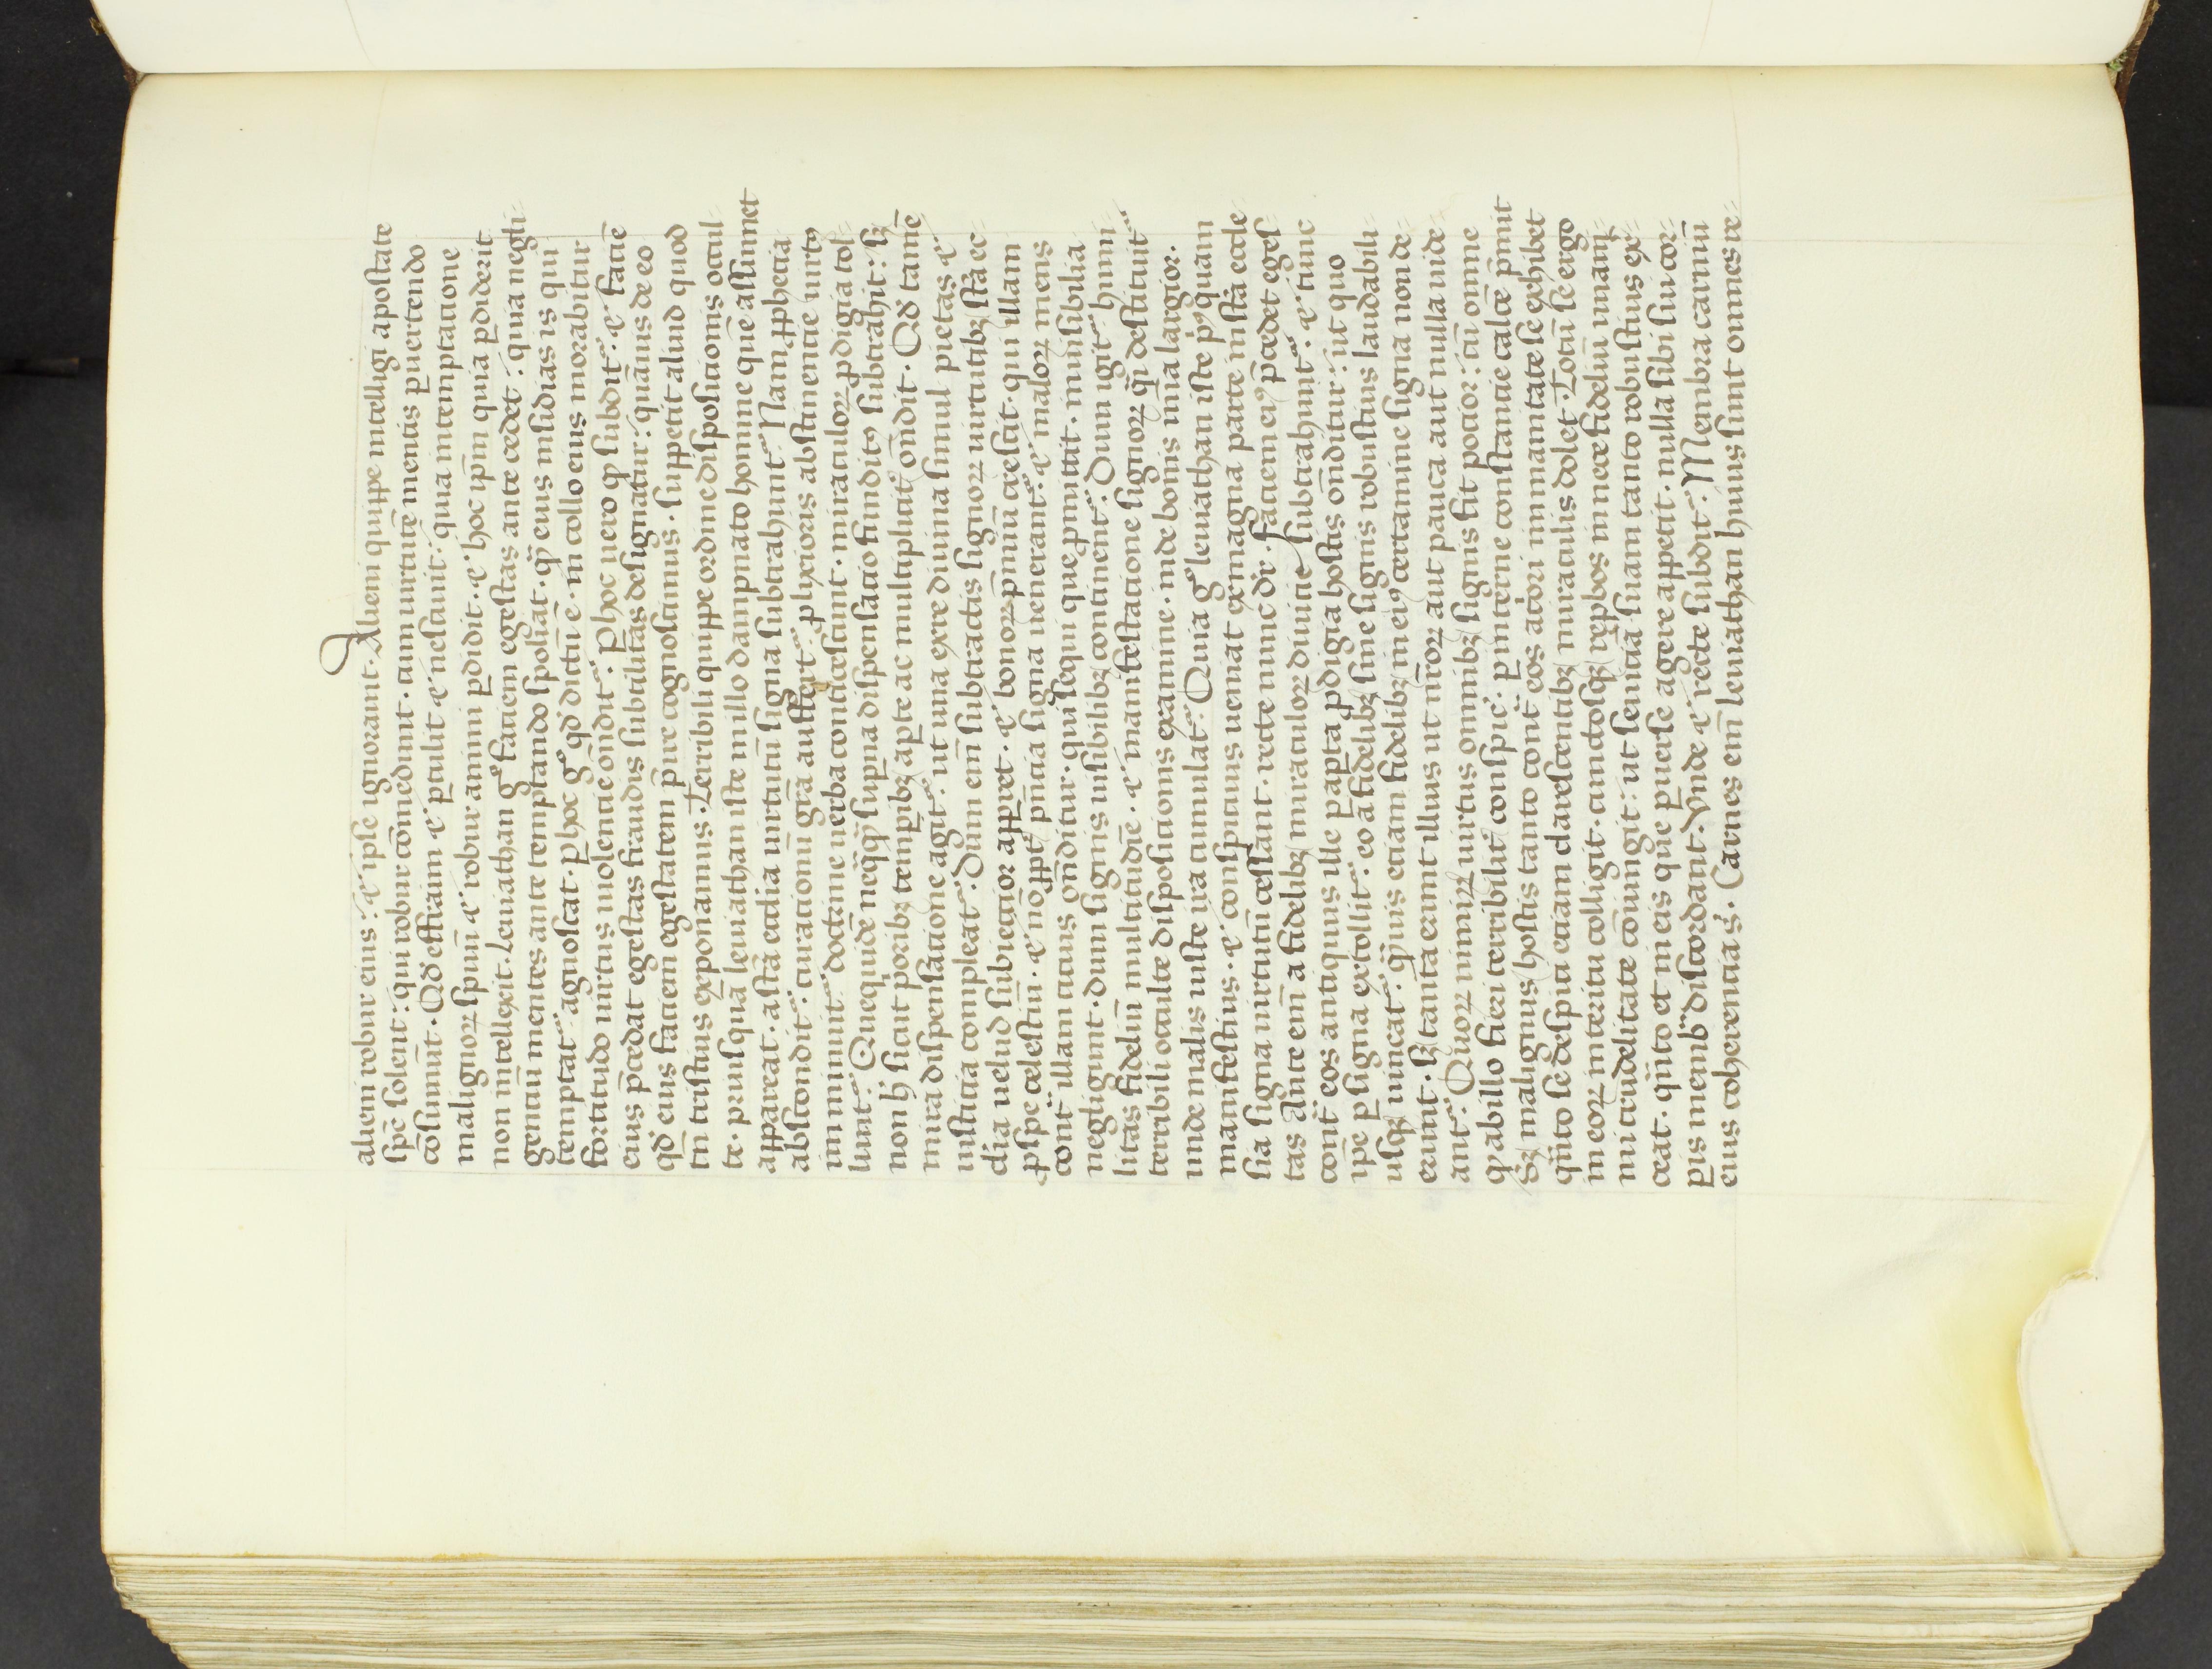 alieni robur eius: ⁊ ipse ignorauit. Alieni quippe intelligi apostate
sp̄c̄ solent: qui robur cōmedunt. cum uirtutē mentis puertendo
cōsumūt. Qd̓ effraim ⁊ ꝑtulit ⁊ nesciuit: quia in temptatione
malignoꝝ spūm ⁊ robur animi ꝑdidit. ⁊ hoc ip̄m quia ꝑdiderit
non intellexit. Leuiathan gͦ faciem egestas antecedet: quia negli-
gentiū mentes ante temptando spoliat. qͣꝫ eius insidias is qui
temptat᷑ agnoscat. ꝑ hoc gͦ qd̓ dictū ē. in collo eius morabitur
fortitudo uirtus uiolentie ōndit᷑. Phoc uero qd̓ subdit᷑. ⁊ faciē
eius p̄cedat egestas fraudis subtilitas designatur: quāuis de eo
qd̓ eius faciem egestatem p̄ire cognoscimus. suppetit aliud quod
tn̄ tristius exponamus. Terribili quippe ordine dispositionis occul-
te. priusquā leuiathan iste in illo dampnato homine quē assumet
appareat. a sc̄ā ecclīa uirtutū signa subtrahunt᷑. Nam ꝓphetia
abscondit᷑. curationū grā auffert᷑. ꝓlixioris abstinentie uirtꝰ
imminuit᷑. doctrine uerba conticescunt. miraculoꝝ ꝓdigia tol-
lunt᷑. Que quidē neqͣqͣꝫ suꝑna dispensatio fundit᷒ subtrahit: sꝫ
non hͨ sicut p̄oribꝫ temꝑibꝫ aꝑte ac multiplicit᷑ ōndit. Qd̓ tamē
mira dispensatione agit᷑. ut una ex re diuina simul pietas ⁊
iusticia compleat᷑. Dum em̄ subtractis signoꝝ uirtutibꝫ sc̄ā ec-
clīa uelud subiectior apparet. ⁊ bonoꝝ p̄miū crescit. qui illam
ꝓ spe celestiū. ⁊ nō ꝓpt᷑ p̄ntia signa uenerant᷑. ⁊ maloꝝ mens
cont᷑ illam citius ōnditur. qui sequi que ꝓmittit. inuisibilia
negligunt. dum signis uisibilibꝫ continent᷑. Dum igit᷑ humi-
litas fidelium multitudīe. ⁊ manifestatione signoꝝ qͣ̄ destituit᷑
terribili occulte dispositionis examine. inde bonis mīa largior.
unde malis iuste ira cumulat᷑. Quia gͦ leuiathan iste pͥꝰquam
manifestius. ⁊ conspicuus ueniat ex magna parte in sc̄ā eccle-
sia signa uirtutū cessant. recte nunc dr̄. Faciem eiꝰ p̄cedet eges-
tas Ante em̄ a fidelibꝫ miraculoꝝ diuitie subtrahunt᷑. ⁊ tunc
cont᷑ eos antiquus ille ꝑ aꝑta ꝓdigia hostis ōnditur: ut quo
ipe ꝑ signa extollit᷑. eo a fidelibꝫ sine signis robustius laudabili-
usqꝫ uincat᷑. qͣꝫuis etiam fidelibꝫ in eiꝰ certamine signa non de-
erunt. sꝫ tanta erunt illius ut nr̄oꝝ aut pauca aut nulla uide-
ant᷑. Quoꝝ nimiꝝ uirtus omnibꝫ signis fit potior: cū omne
qd̓ ab illo fieri terribilit᷑ conspic̄. ꝑ interne constantie calcē p̄mit
Sꝫ malignus hostis tanto cont᷑ eos acͥori immanitate se exhibet
qͣnto se despici etiam clarescentibꝫ miraculis dolet. Totū se ergo
in eoꝝ interitu colligit. cunctosqꝫ rep̱bos in nece fideliū unaniꝫ-
mi crudelitate cōiungit: ut seuiciā suam tanto robustius ex-
ceat. qͣnto et in eis que ꝑuerse agere appetit. nulla sibi sui cor-
ꝑis membͬ discordant. Vnde ⁊ recte subdit᷑. Menbra carniū
eius coherentia sͥ. Carnes em̄ leuiathan huius sunt omnes re-